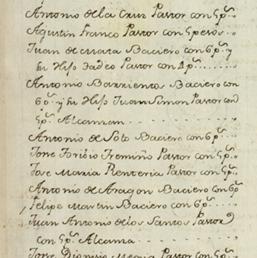 Antonio de la Cruz Pastor con 5p.s
Agustin Franco Pastor con 5 pesos
Juan de Mata Baciero con 6 p.s y
su Hijo Tadeo Pastor con 4 p.s
Antonio Barrientos Baciero con
6 p.s y su Hijo Juan Simon Pastor con
5 p.s Alcaman
Antonio de Soto Baciero con 6 p.s
Jose Toribio Tremiño Pastor con 5 p.s
Jose Maria Renteria Pastor con 5 p.s
Antonio de Aragon Baciero con 6 p.s
Felipe Martin Baciero con 6 p.s
Juan Antonio de los Santos Pastor
con 5 p.s Alcama
Jose Dionicio Pastor con 5 p.s